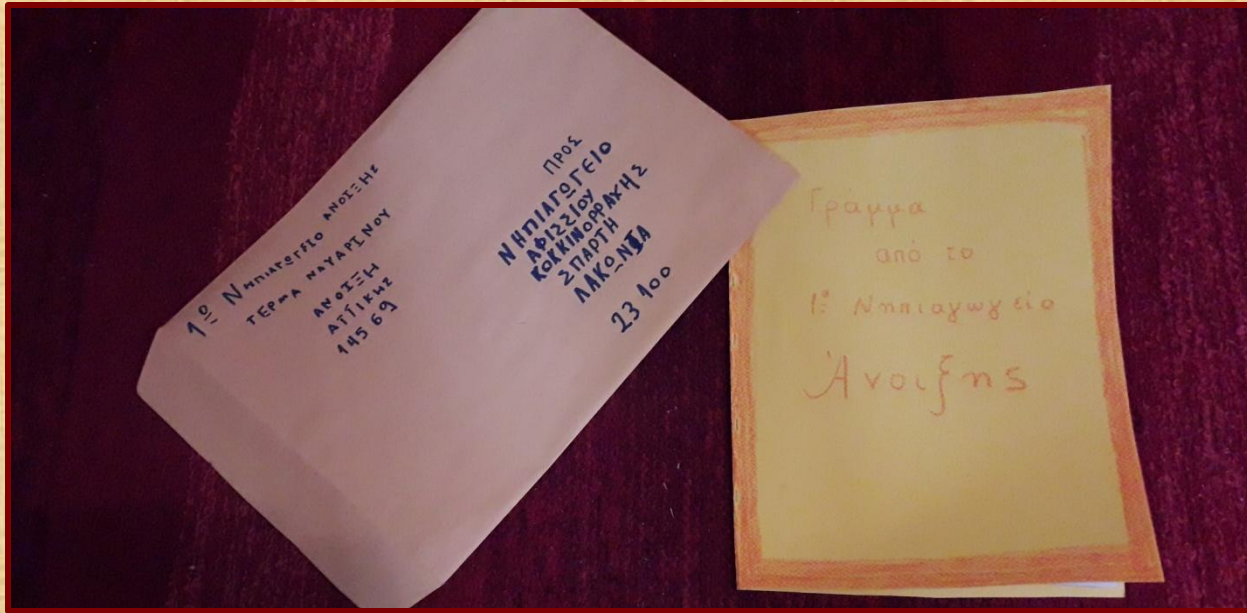 1º Νηπιαγωγείο ΑΝΟΙΞΗΣ
ΤΕΡΜΑ ΝΑΥΑΡΙΝΟΥ
ΑΝΟΙΞΗ
ΑΤΤΙΚΗΣ
14569
ΠΡΟΣ
ΝΗΠΙΑΓΩΓΕΙΟ
ΑΦΙΣΣΙΟΥ
ΚΟΚΚΙΝΟΡΡΑΧΗΣ
ΣΠΑΡΤΗ
ΛΑΚΩΝΙΑ
23100
Γράμμα
από το
1º Νηπιαγωγείο
Άνοιξης